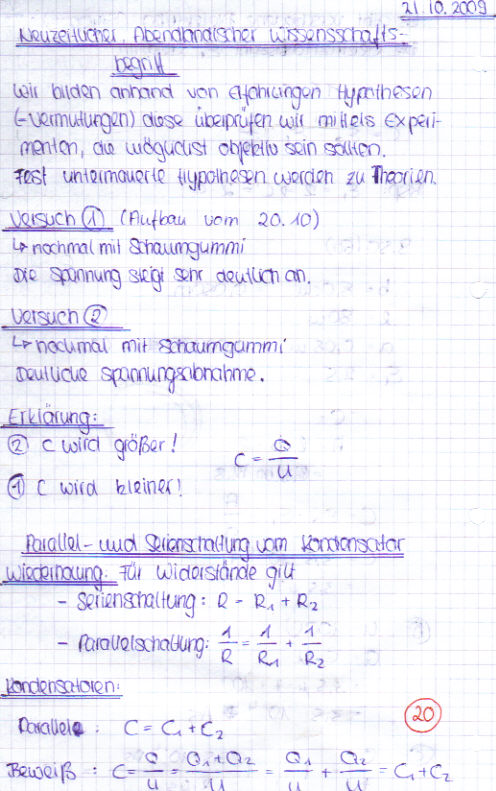 21.10.2009
Neuzeitlicher, Abendländischer Wissensschafts-
begriff
Wir bilden anhand von Erfahrungen Hypothesen
(-Vermutungen) diese überprüfen wir mittels Experi-
menten, die möglichst objektiv sein sollten.
Fest untermauerte Hypothesen werden zu Theorien.
Versuch ① (Aufbau vom 20.10)
↳ nochmal mit Schaumgummi
Die Spannung steigt sehr deutlich an.
Versuch ②
↳ nochmal mit Schaumgummi
Deutliche Spannungsabnahme.
Erklärung:
② C wird größer! C = Q/U
① C wird kleiner!
Parallel- und Serienschaltung vom Kondensator
Wiederholung: Für Widerstände gilt
- Serienschaltung: R = R₁ + R₂
- Parallelschaltung: 1/R = 1/R₁ + 1/R₂
Kondensatoren:
20
Parallel: C = C₁ + C₂
Beweiß: C = Q/U = Q₁+Q₂/U = Q₁/U + Q₂/U = C₁ + C₂